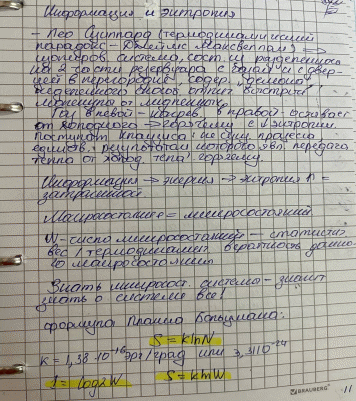 Информация и энтропия
- Лео Сциллард (термодинамический
парадокс - Джеймс Максвеллам) =>
система, сост. из разделенного
на 2 части резервуара с газом и с двер-
цей в перегородке. Содер. демона
молекулы от медленных.
Газ в левой - нагрев, в правой - остывает
от холодного => горячему = ↓ энтропии.
Постулат Клаузиуса: не сущ. процесса,
единств. результатом которого явл. передача
тепла от холод. тела горячему.
Информация → энергия → энтропия ↑ =
Макросостояние = микросостояний
W - число микросостояний - статистич.
вес / термодинамич. вероятность данно-
го макросостояния
Знать микросост. системы - значит
знать о системе все!
формула Планка Больцмана:
S = klnN
k = 1,38 · 10⁻¹⁶ эрг/град или 3,31·10⁻²⁴
I = log2W S = klnW
BRAUBERG 11